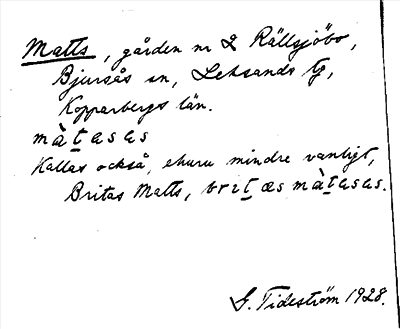 Matts, gården nr 2 Rällsjöbo,
Bjursås sn, Leksands tg,
Kopparbergs län.
màt̲asas
Kallas också, ehuru mindre vanligt,
Britas Matts, brit̲æs màt̲asas.
G. Tideström 1928.